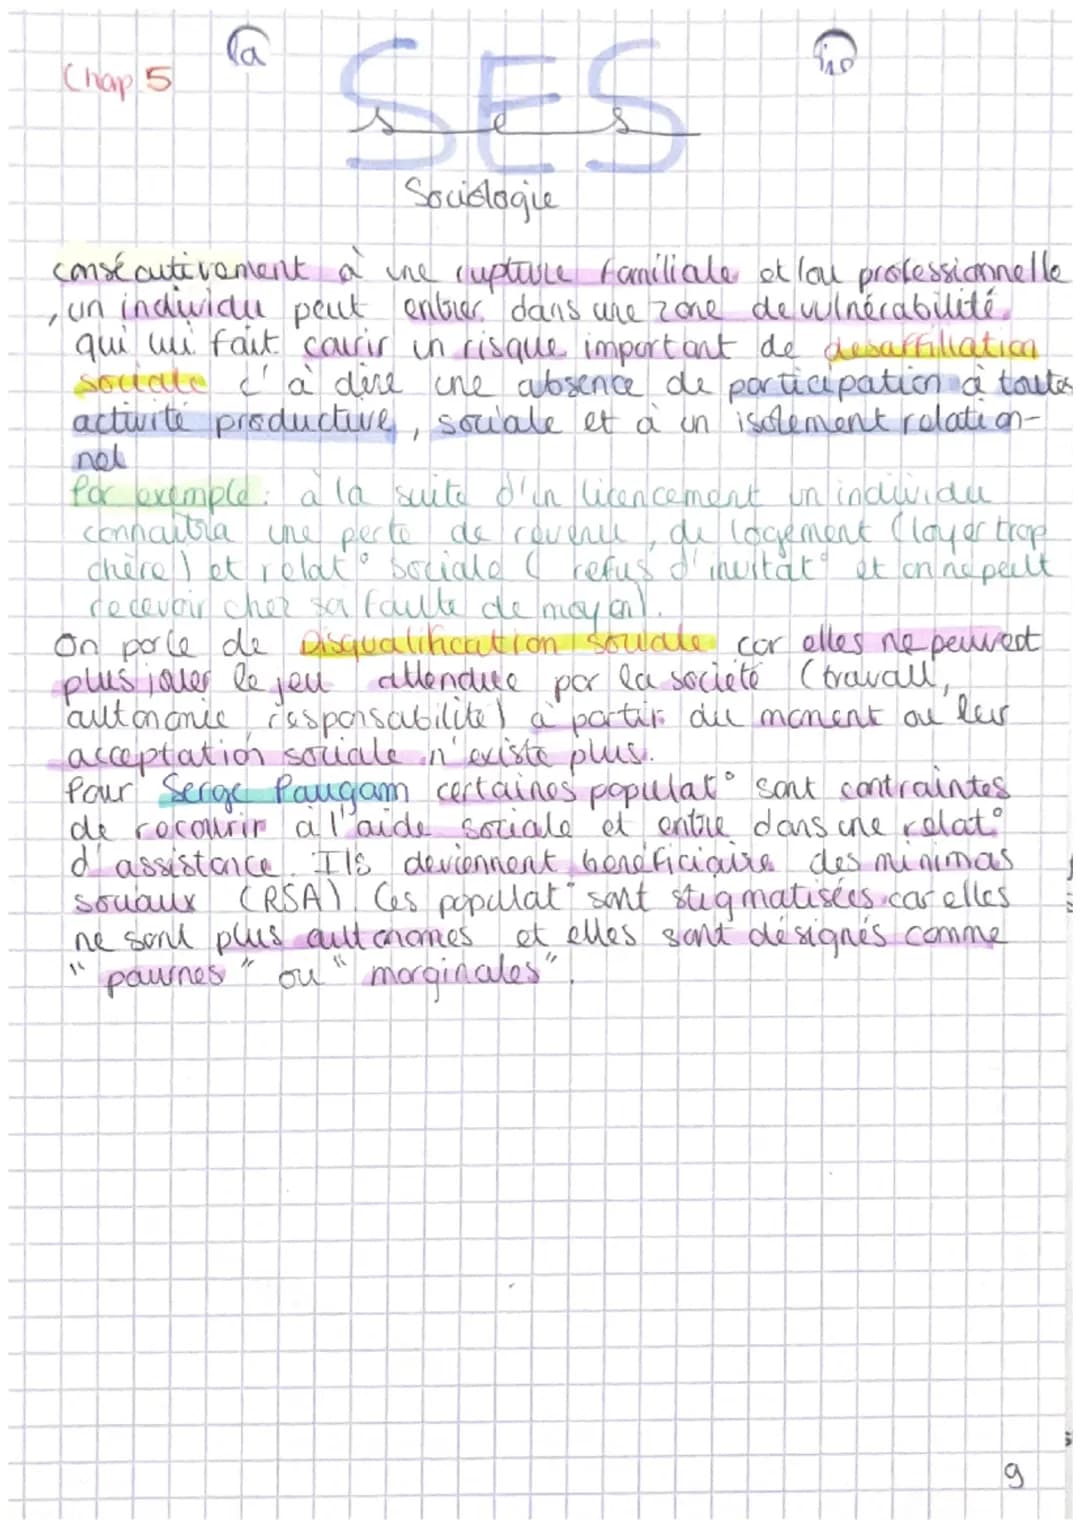 la
fin
Chap 5
SES
ses
Sociologie
consécutivement à une rupture familiale et/ou professionnelle
, un individu peut entrer dans une zone de vulnérabilité
qui lui fait courir un risque important de desaffiliation
sociale c'à dire une absence de participation à toutes
activité productive, sociale et à un isolement relation-
nel
Par exemple : à la suite d'un licencement un individu
connaitra une perte de revenu, de logement (loyer trop
chère) et relat° sociale ( refus d'invitat° et on ne peut
recevoir chez sa faute de moyen).
On parle de Disqualification sociale car elles ne peuvent
plus jouer le jeu attendue par la société (travail,
autonomie, responsabilité) à partir du moment ou leur
acceptation sociale n'existe plus.
Pour Serge Paugam certaines populat° sont contraintes
de recourir à l'aide sociale et entre dans une relat°
d'assistance. Ils deviennent bénéficiaire des minimas
sociaux (RSA). Ces populat° sont stigmatisées car elles
ne sont plus autonomes et elles sont désignés comme
"pauvres" ou "marginales".
9